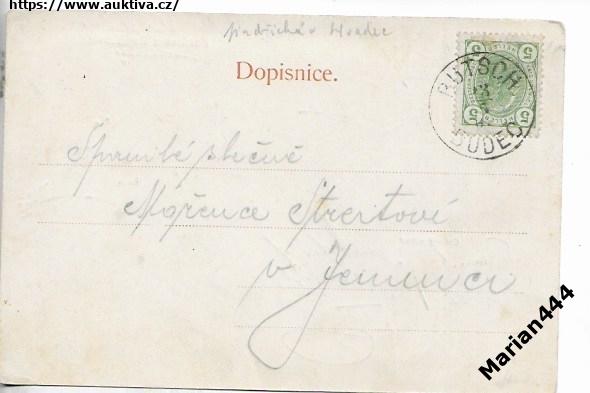 https://www.auktiva.cz/
Jindřichův Hradec
Dopisnice.
5 5
5 5
BUTSCH
BUDEČ
slečně
Mařence Strertové
v Jemnici
Marian444